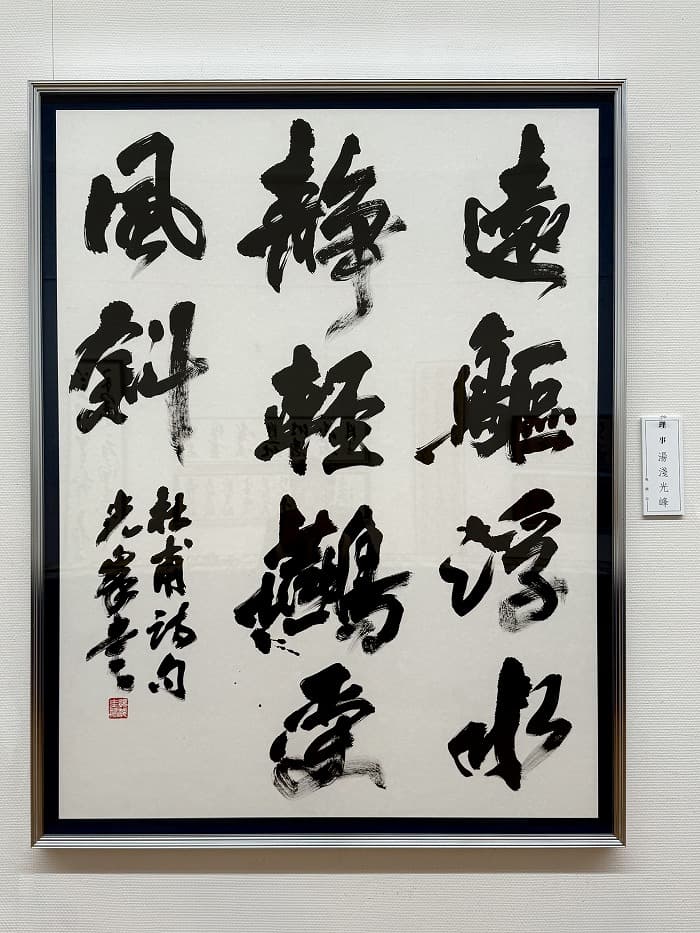 遠鷗浮水
静輕鷰受
風斜
杜甫詩句
光峯書
理事 湯淺光峰